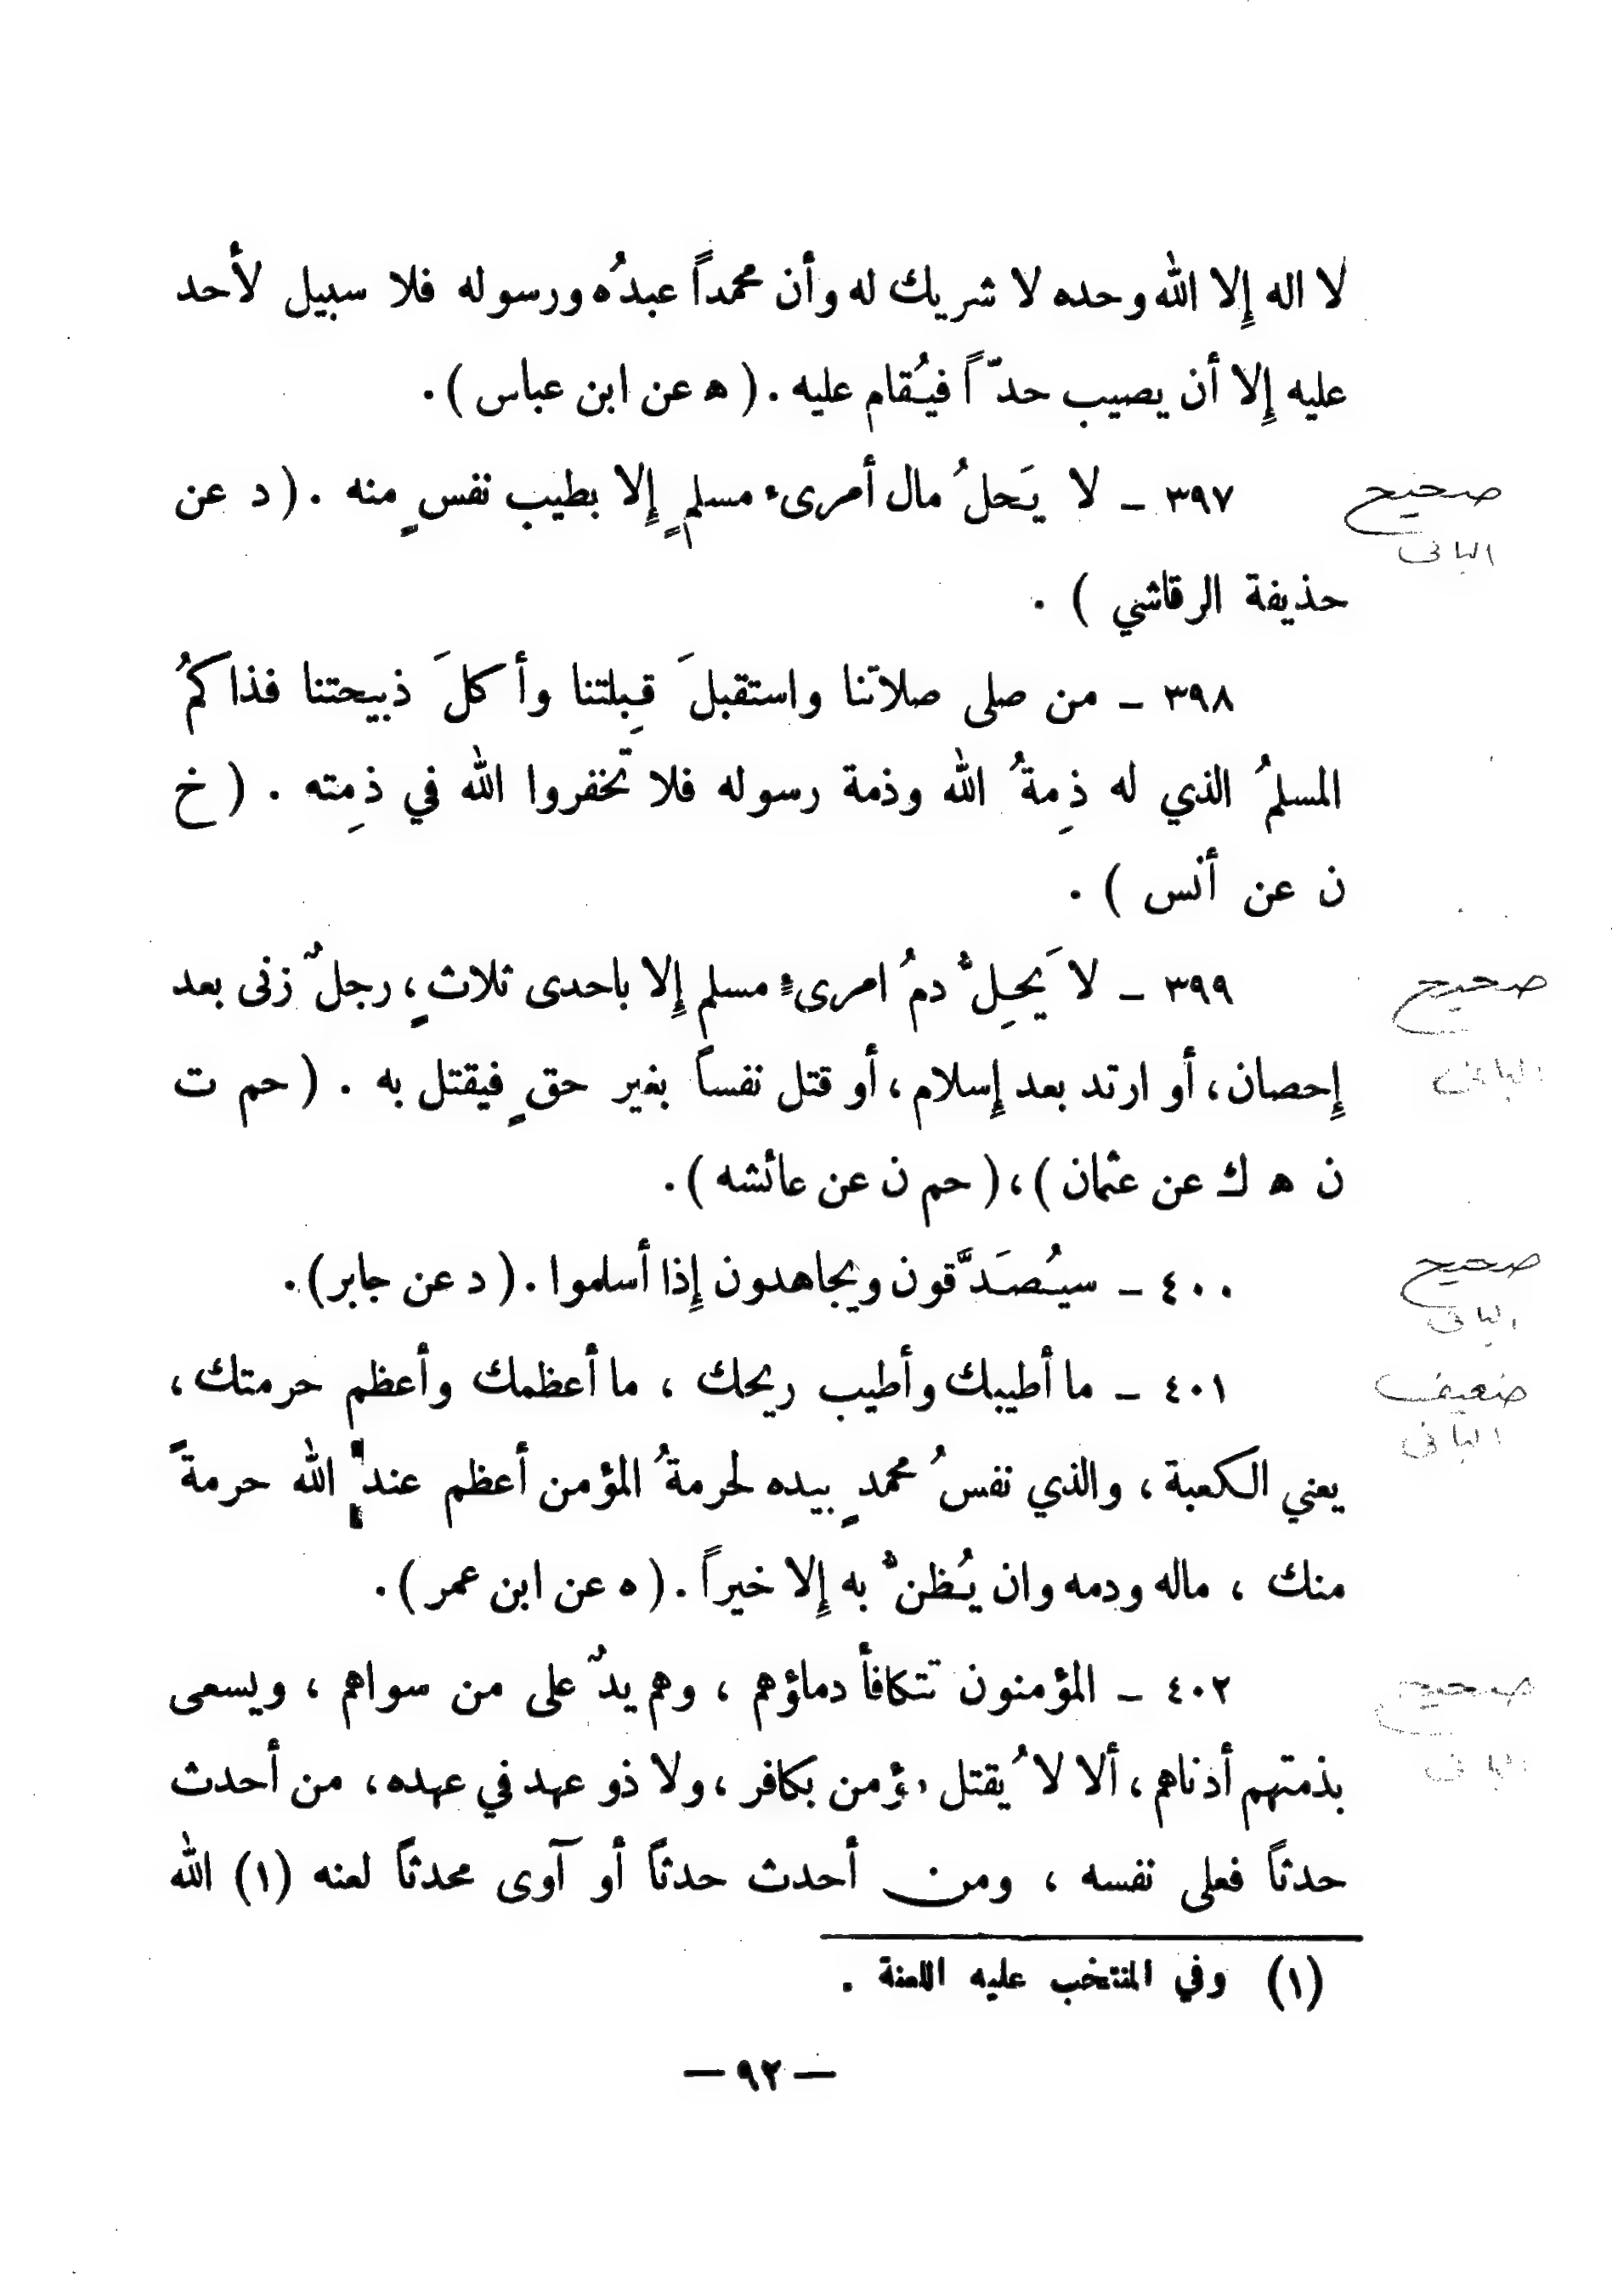 لا اله إِلا الله وحده لا شريك له وأن محمداً عبدُه ورسوله فلا سبيل لأحد
عليه إِلا أن يصيب حدّاً فيُقام عليه . ( ه عن ابن عباس ) .
٣٩٧ – لا يَحلُ مال أمرىء مسلمٍ إِلا بطيب نفسٍ منه . ( د عن
صحيح
البانى
حذيفة الرقاشي ) .
٣٩٨ – من صلى صلاتَنا واستقبلَ قِبلتنا وأكلَ ذبيحتنا فذاكمُ
المسلمُ الذي له ذِمةُ الله وذمة رسوله فلا تخفروا الله في ذمِته . ( خ
ن عن أنس ) .
٣٩٩ – لا يَحِلُّ دمُ امرىءٍ مسلم إِلا باحدى ثلاثٍ، رجلٌ زنى بعد
صحيح
إِحصان، أو ارتد بعد إِسلام، أو قتل نفساً بغير حقٍ فيقتل به . ( حم ت
البانى
ن ه ك عن عثمان )،( حم ن عن عائشه ) .
٤٠٠ – سيُصَدَّقون ويجاهدون إِذا أسلموا . ( د عن جابر ) .
صحيح
البانى
٤٠١ – ما أطيبك وأطيب ريحك ، ما أعظمك وأعظم حرمتك،
ضعيف
البانى
يعني الكعبة ، والذي نفسُ محمدٍ بيده لحرمةُ المؤمن أعظم عند الله حرمةً
منك ، ماله ودمه وان يُظنُّ به إِلا خيراً . ( ه عن ابن عمر ) .
٤٠٢ – المؤمنون تتكافأ دماؤهم ، وهم يدٌ على من سواهم ، ويسعى
صحيح
بذمتهم أدناهم، ألا لا يُقتل مؤمن بكافر ،ولا ذو عهد في عهده، من أحدث
البانى
حدثاً فعلى نفسه ، ومن أحدث حدثاً أو آوى محدثاً لعنه (١) الله
(١) وفي المنتخب عليه اللعنة .
— ٩٢ —